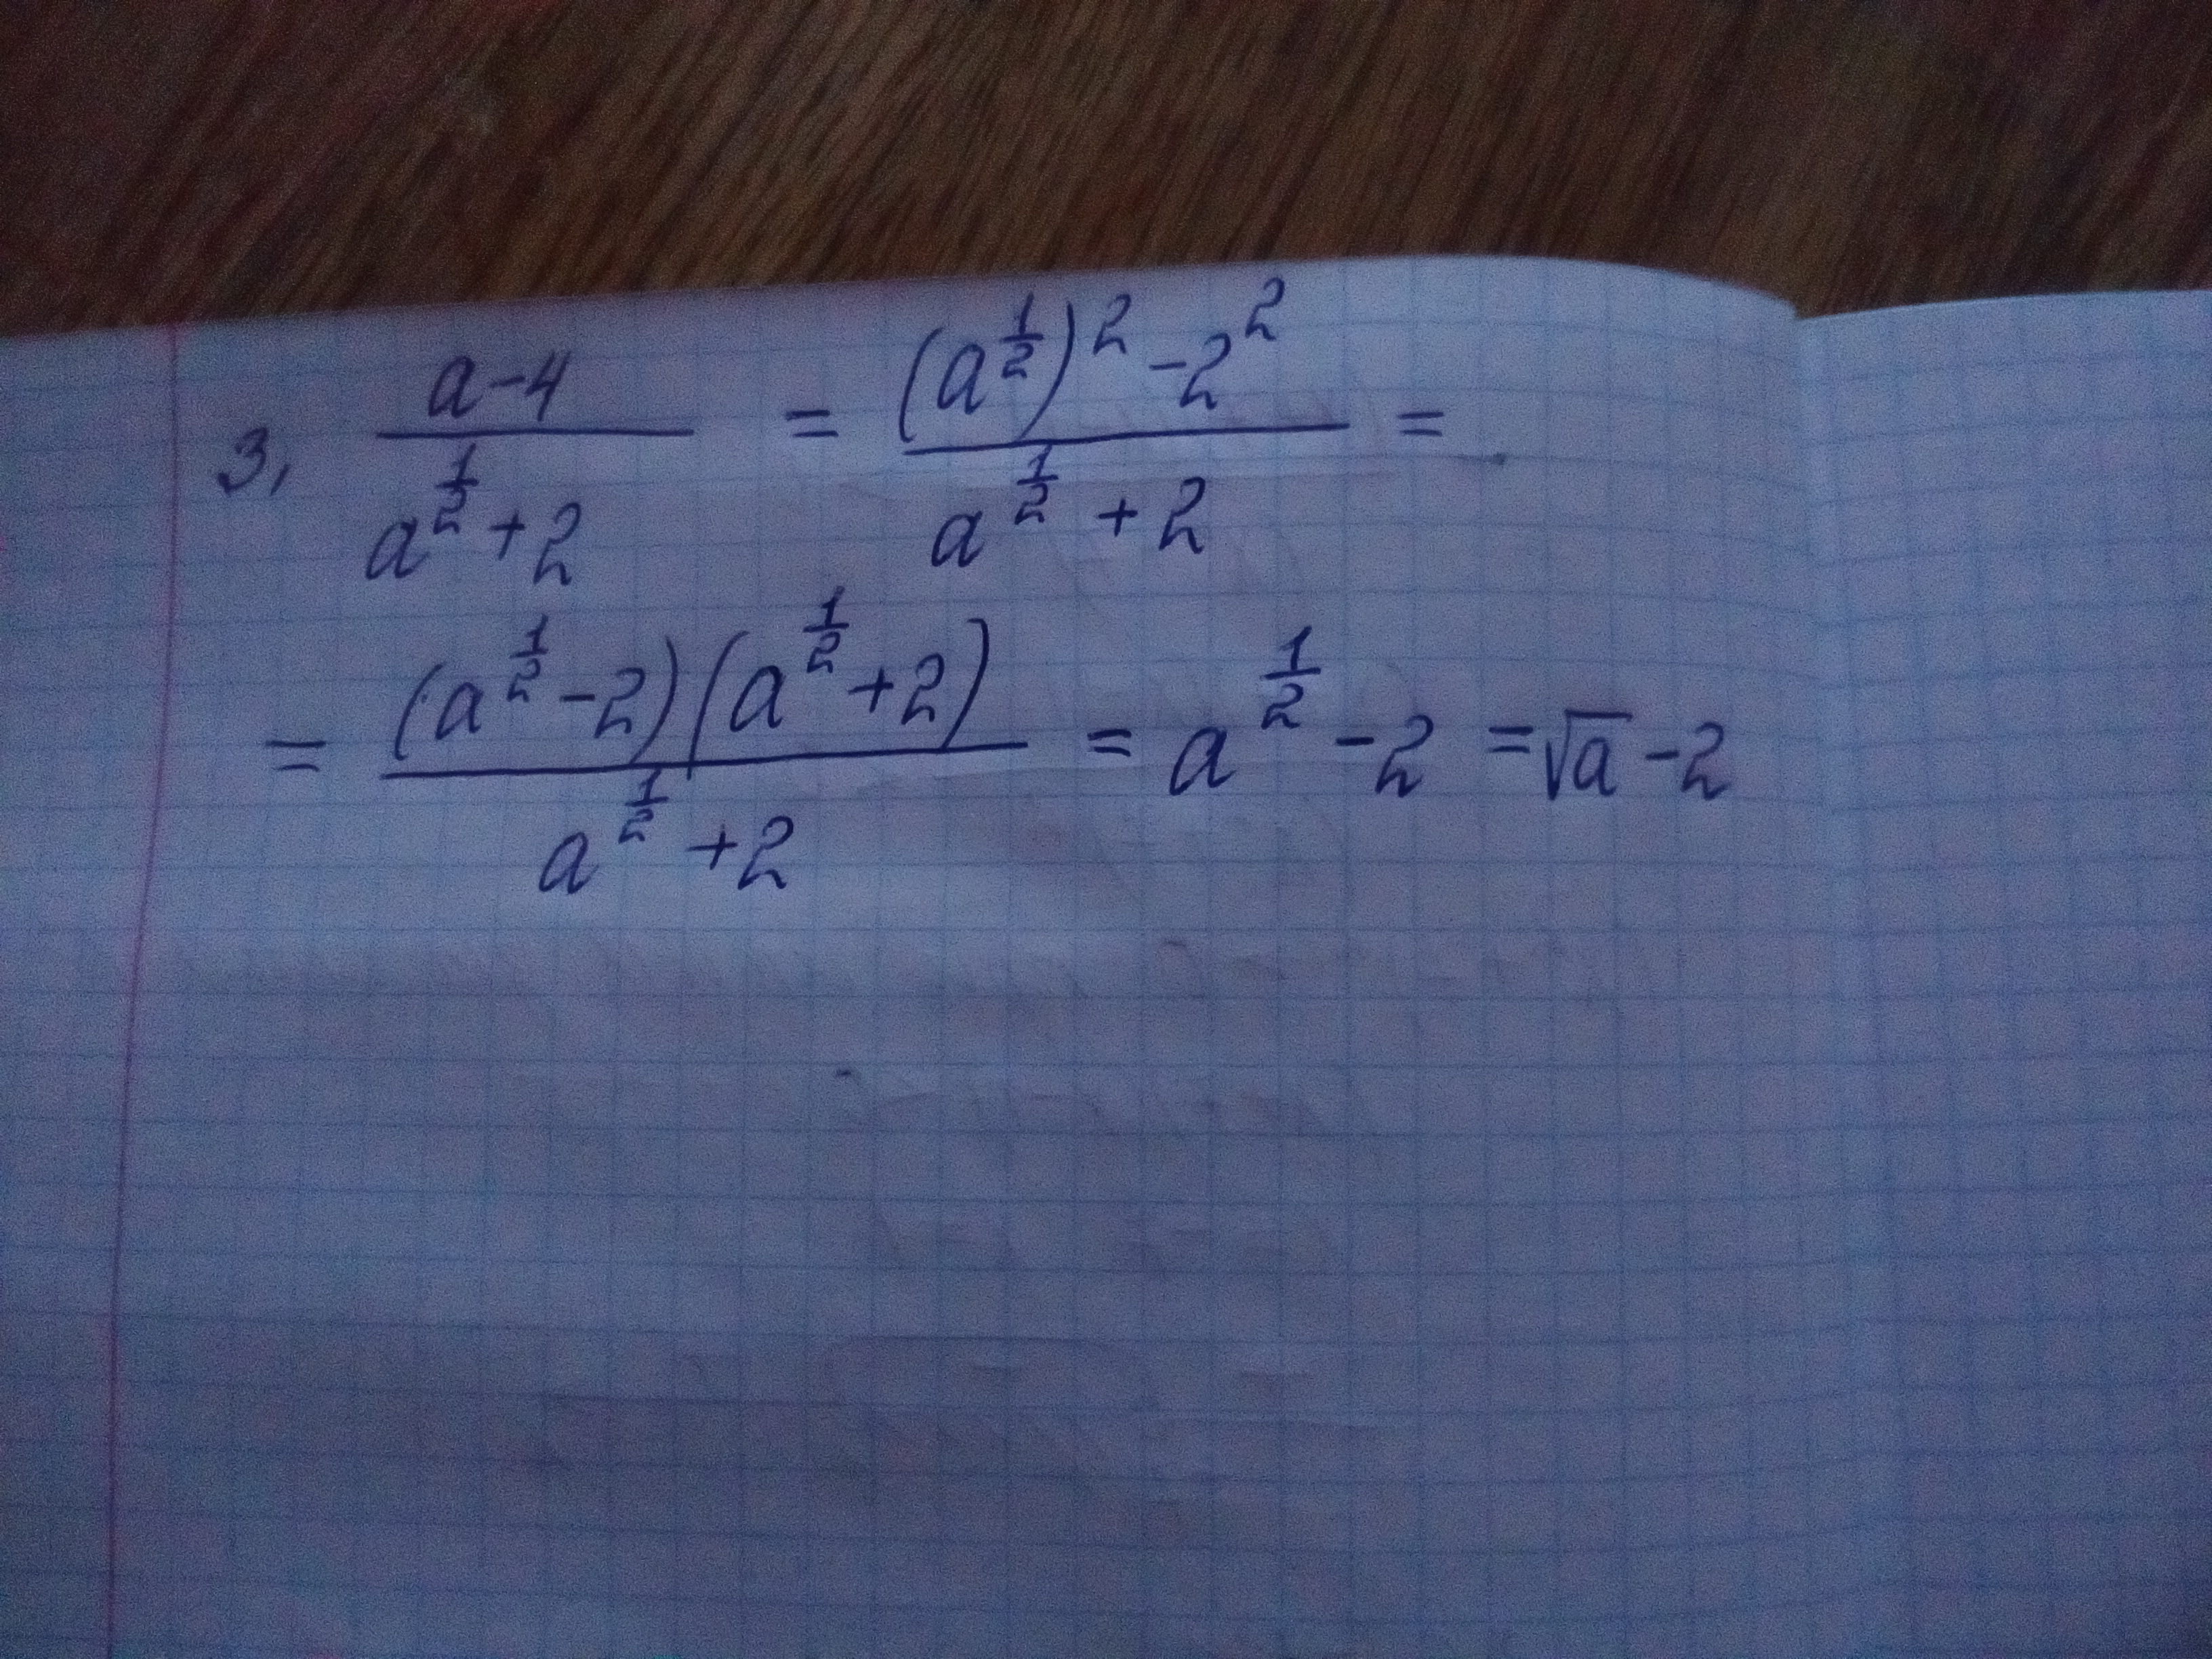 3, \frac{a-4}{a^{\frac{1}{2}}+2} = \frac{(a^{\frac{1}{2}})^2-2^2}{a^{\frac{1}{2}}+2} =
= \frac{(a^{\frac{1}{2}}-2)(a^{\frac{1}{2}}+2)}{a^{\frac{1}{2}}+2} = a^{\frac{1}{2}}-2 = \sqrt{a}-2